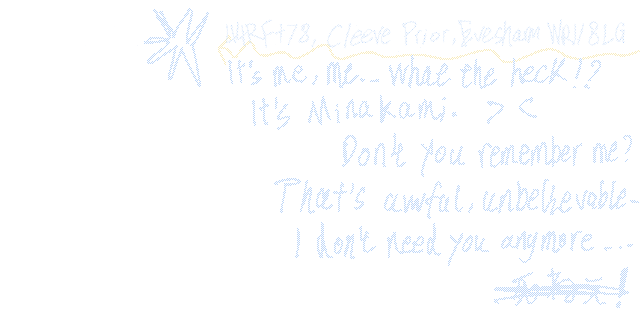 Cleeve Prior, Evesham WR11 8LG
It's me, me... what the heck!?
It's Minakami. > <
Don't you remember me?
That's awful, unbelievable-
I don't need you anymore ...
!